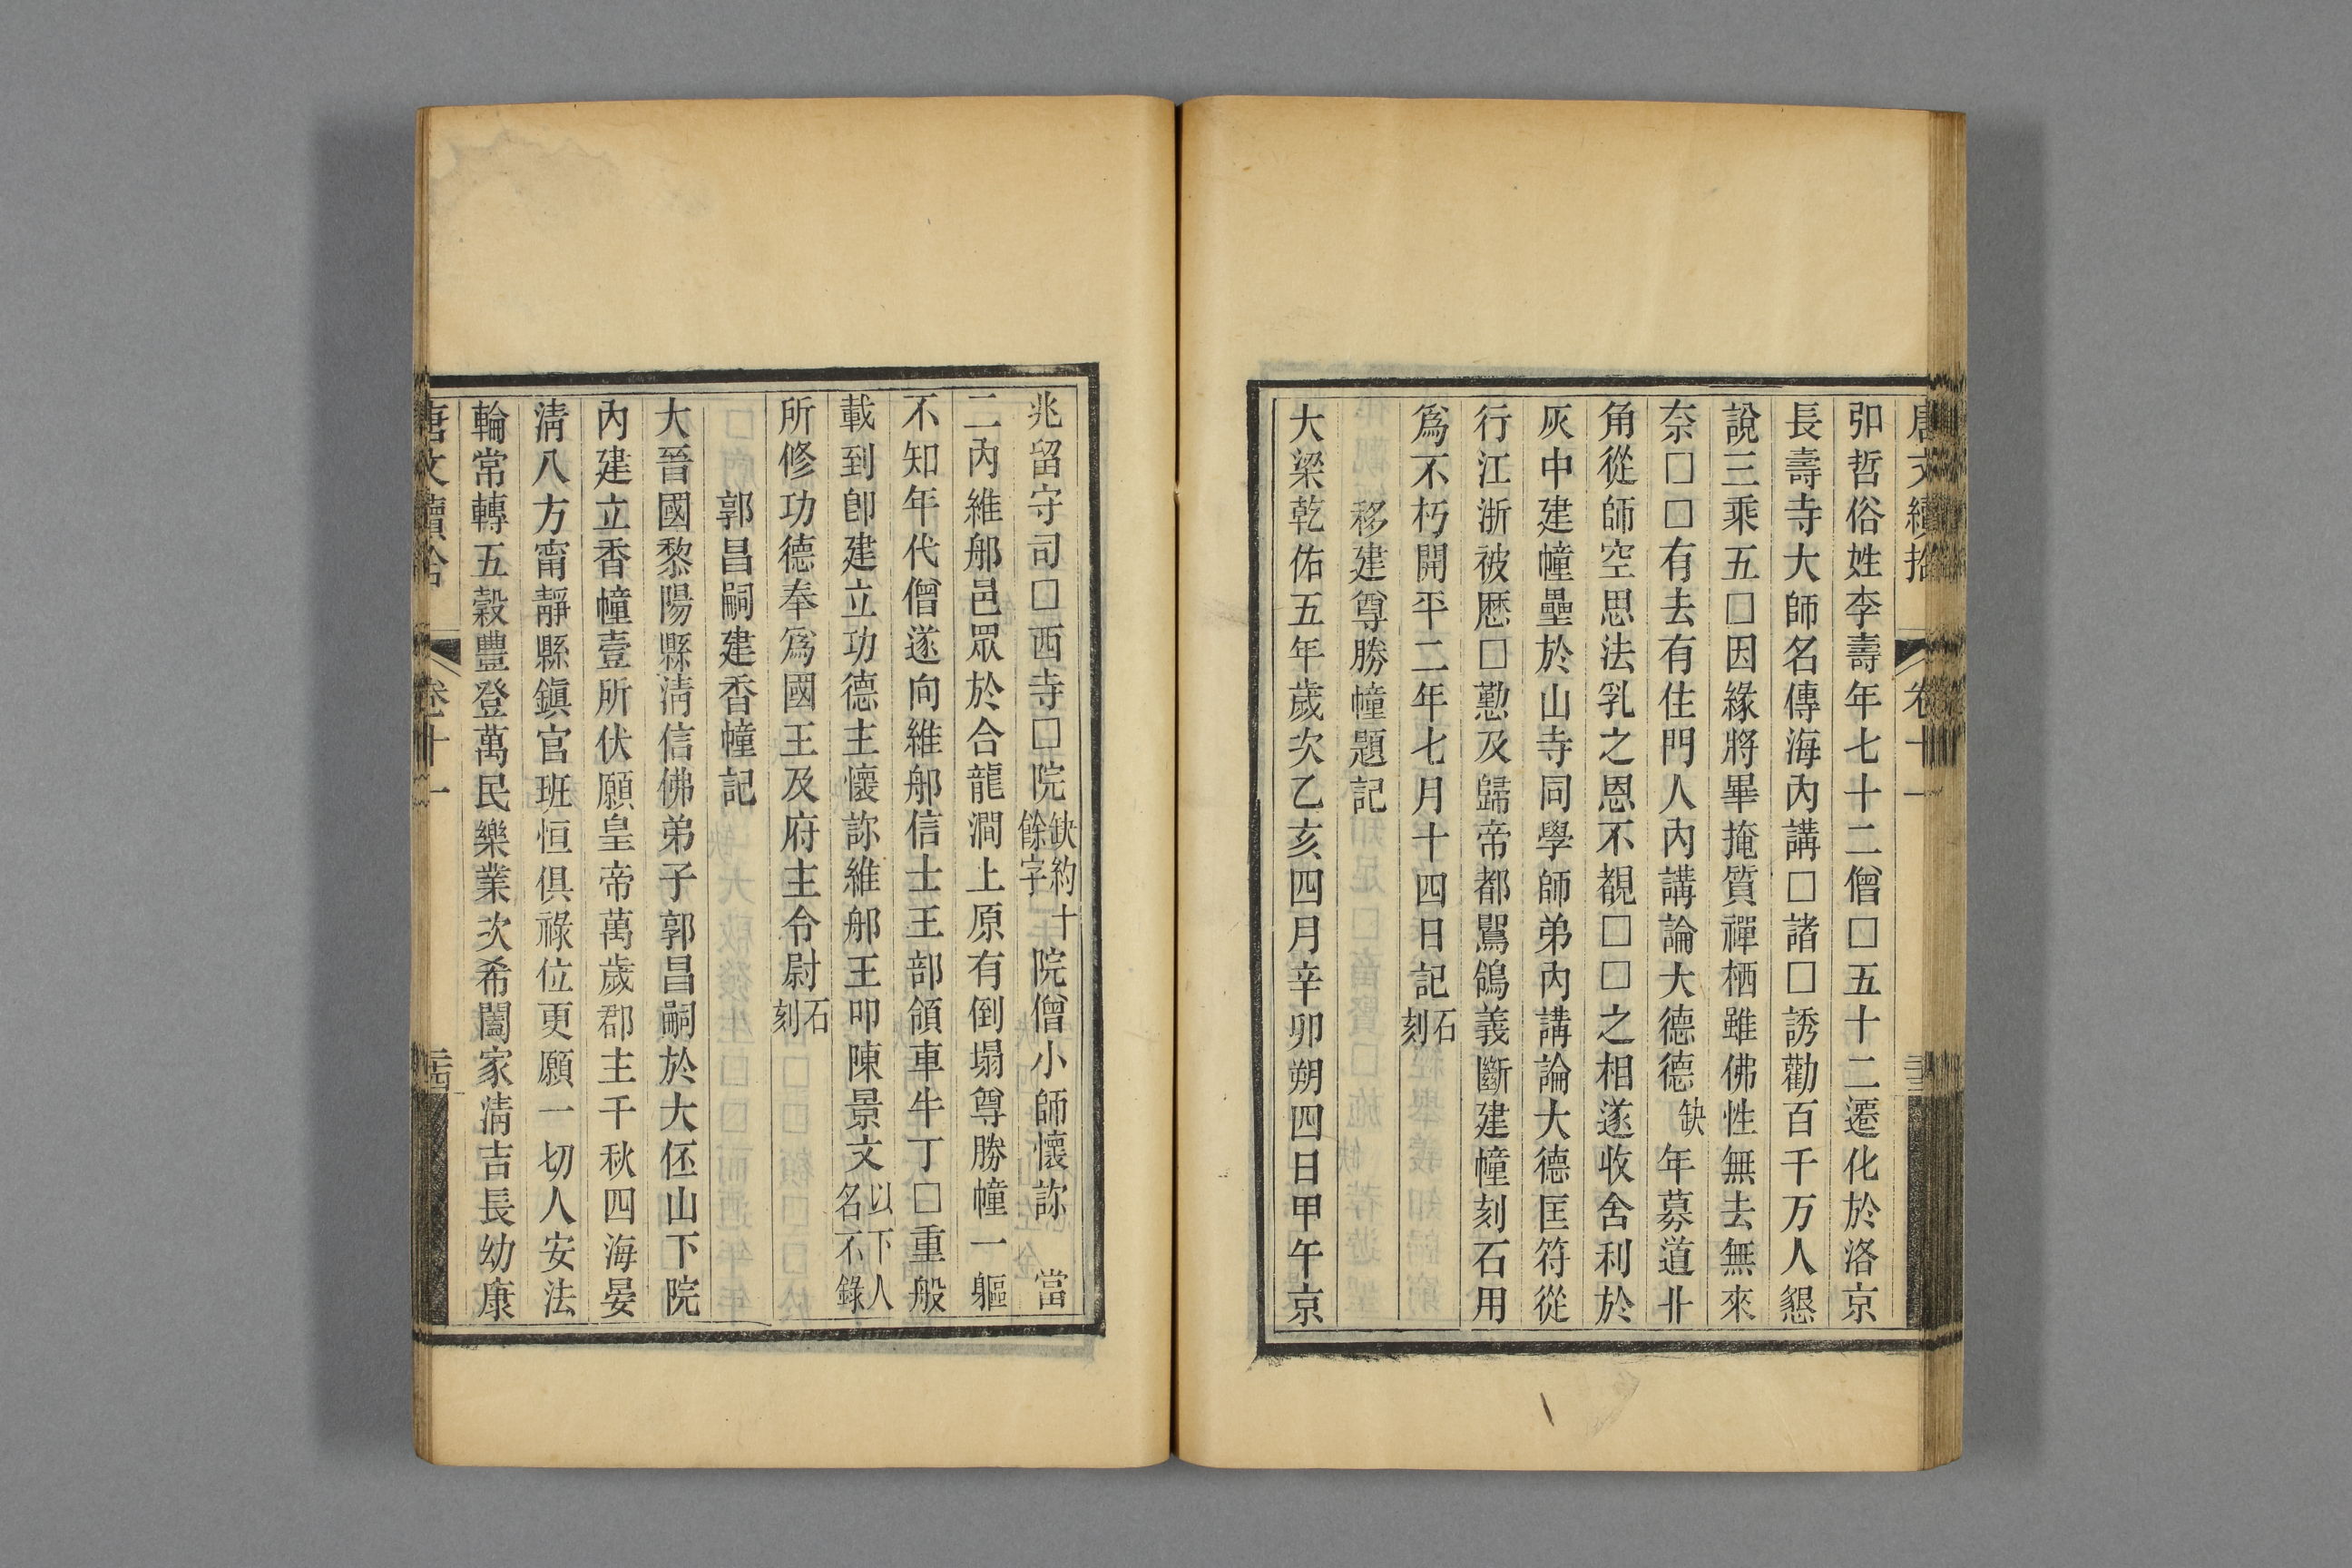 唐文續拾 卷十一
卭哲俗姓李壽年七十二僧□五十二遷化於洛京
長壽寺大師名傳海內講□諸□誘勸百千万人懇
說三乘五□因緣將畢掩質禪栖雖佛性無去無來
奈□□有去有住門人內講論大德德缺年募道卝
角從師空思法乳之恩不覩□□之相遂收舍利於
灰中建幢壘於山寺同學師弟內講論大德匡符從
行江浙被厯□懃及歸帝都鶚鴿義斷建幢刻石用
爲不朽開平二年七月十四日記石刻
移建尊勝幢題記
大梁乾佑五年歲次乙亥四月辛卯朔四日甲午京
兆留守司□西寺□院缺約十餘字院僧小師懷訡 當
二內維郍邑眾於合龍澗上原有倒塌尊勝幢一軀
不知年代僧遂向維郍信士王部領車牛丁□重般
載到卽建立功德主懷訡維郍王叩陳景文以下人名不錄
所修功德奉爲國王及府主令尉石刻
郭昌嗣建香幢記
大晉國黎陽縣清信佛弟子郭昌嗣於大伾山下院
內建立香幢壹所伏願皇帝萬歲郡主千秋四海晏
淸八方甯靜縣鎭官班恒俱祿位更願一切人安法
輪常轉五穀豐登萬民樂業次希闔家清吉長幼康
唐文續拾 卷十一